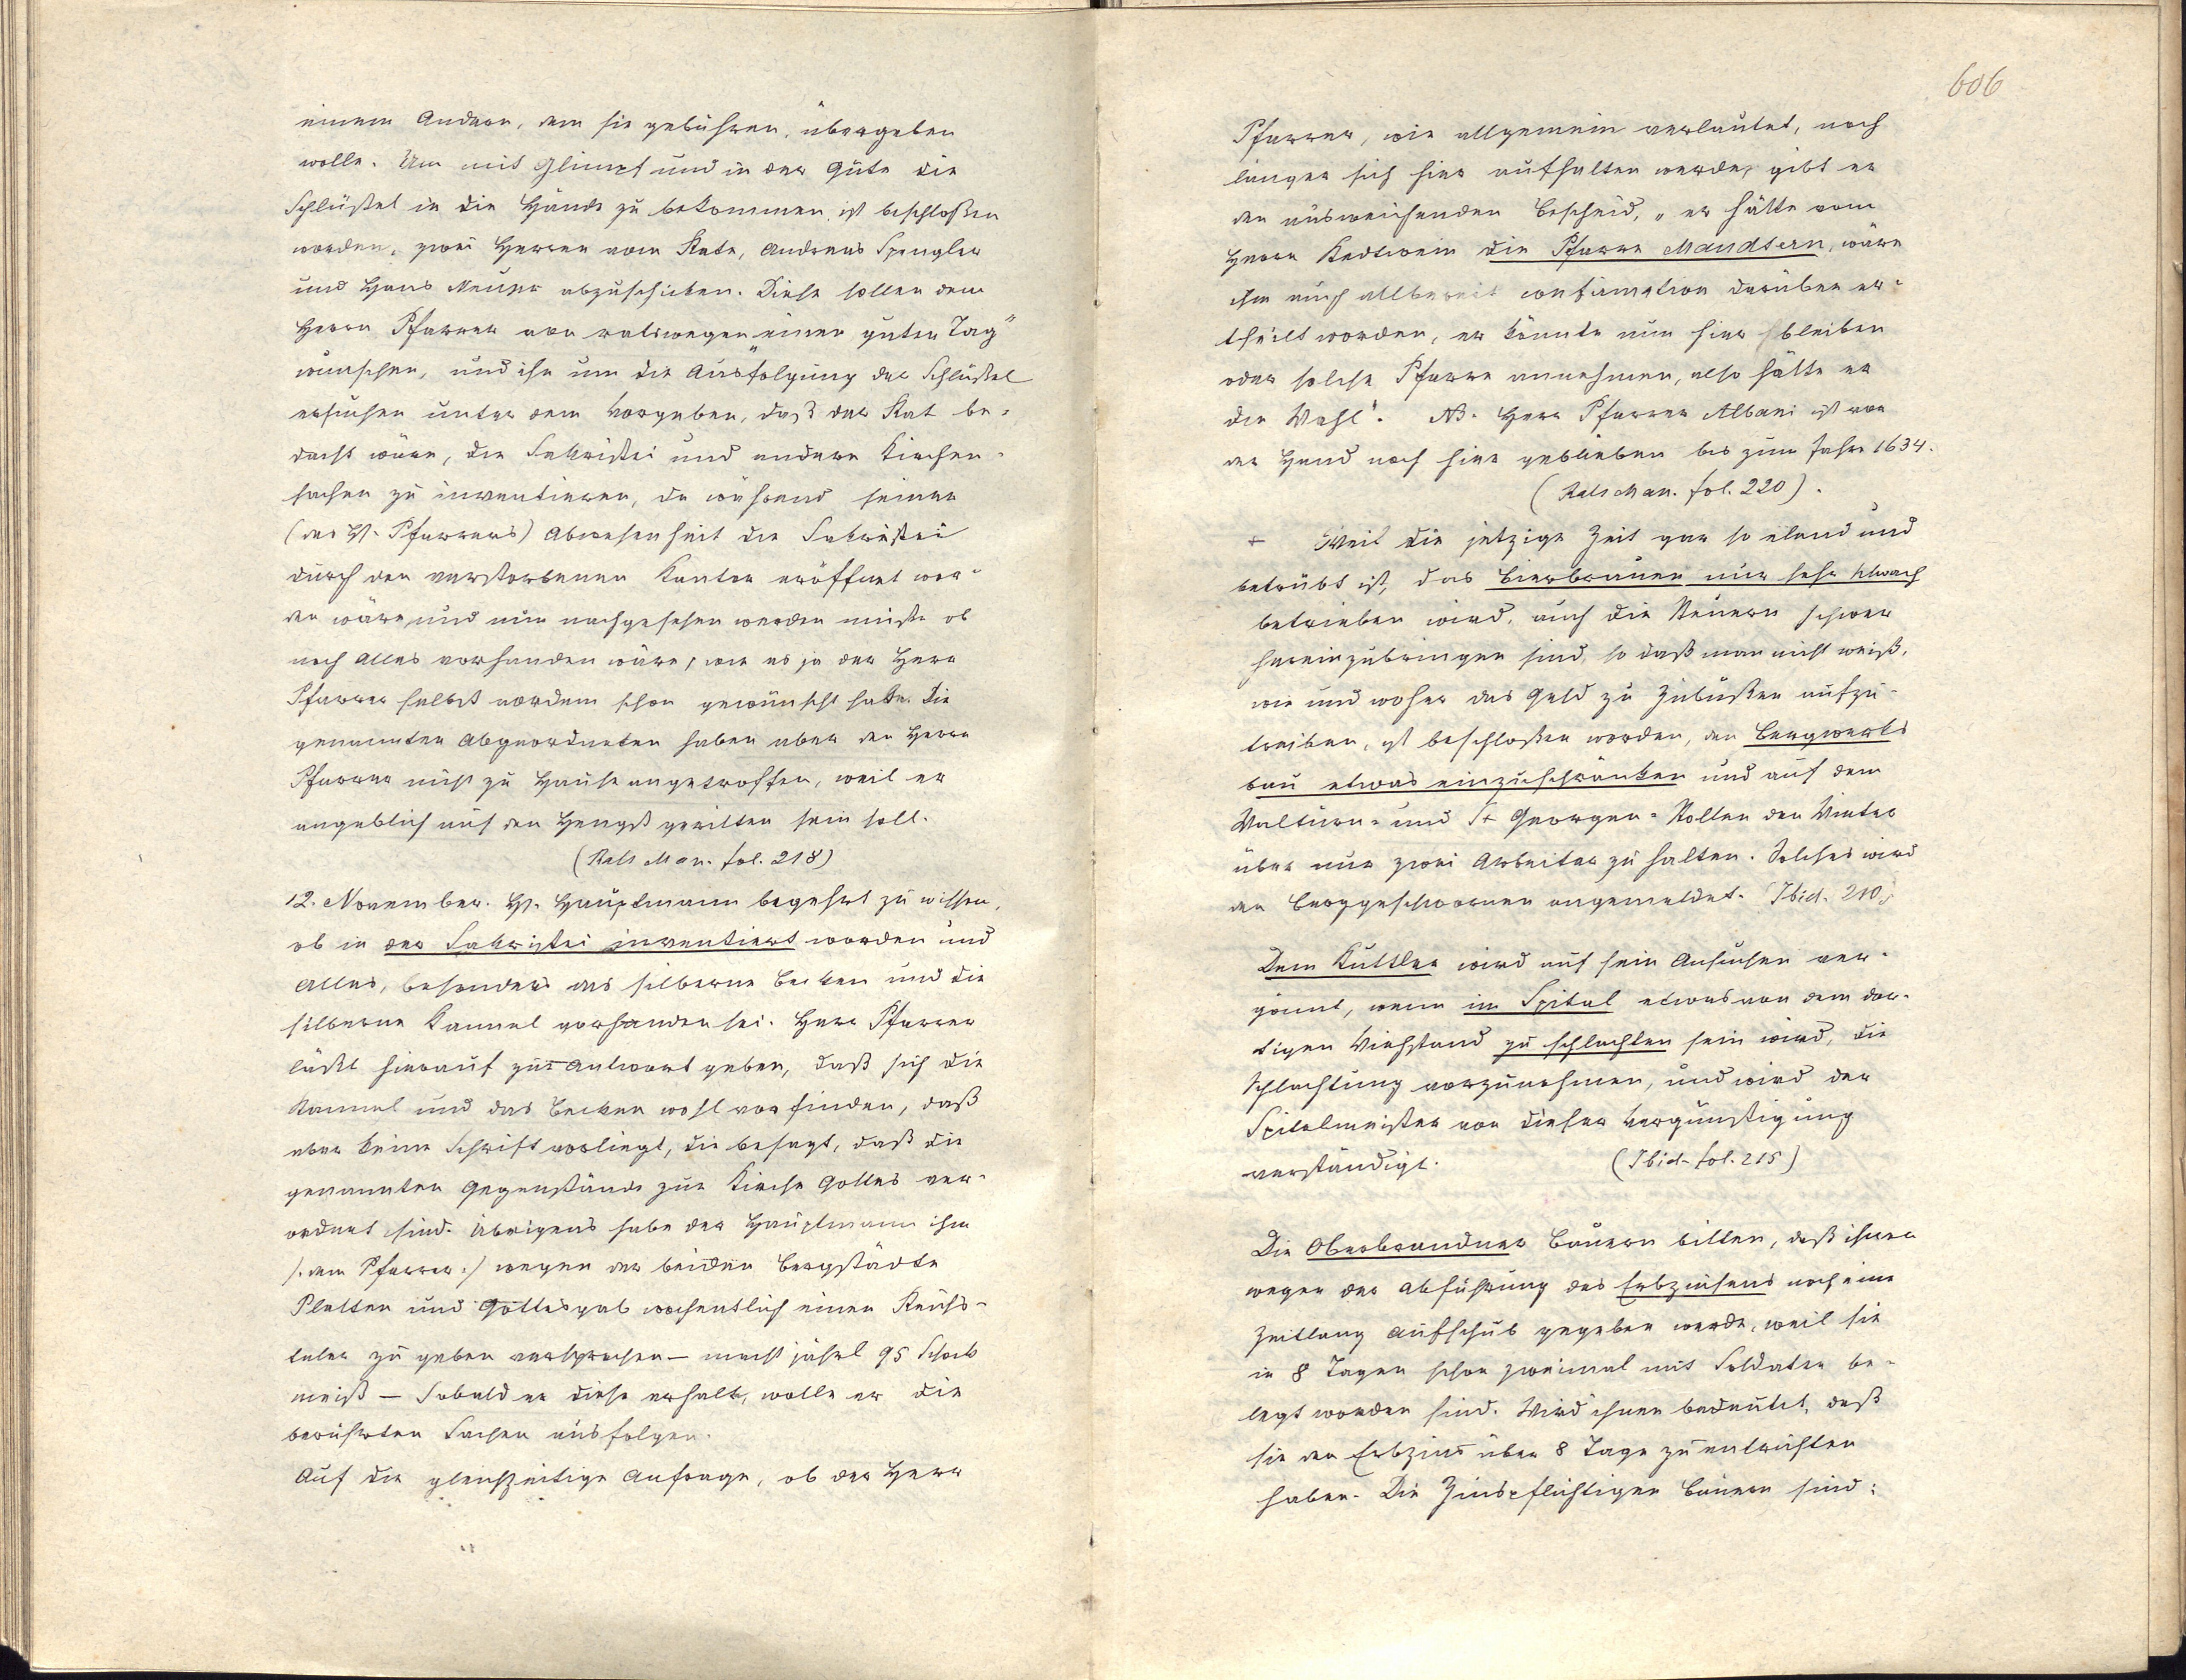 einem Andern, dem sie gebühren, übergeben
wolle. Um mit Glimpf und in der Güte die
Schlüßel in die Hände zu bekommen, ist beschloßen
worden, zwei Herren vom Rate, Andreas Spengler
und Hans Meuser abzuschicken. Diese sollen dem
Herrn Pfarrer von ratswegen „einen guten Tag"
wünschen, und ihn um die Ausfolgung der Schlüßel
ersuchen unter dem Vorgeben, daß der Rat be-
dacht wäre, die Sakristei und andere Kirchen-
sachen zu inventieren, da während seiner
(des H. Pfarrers) Abwesenheit die Sakristei
durch den verstorbenen Kantor eröffnet wor-
den wäre, und nun nachgesehen werden müßte ob
noch Alles vorhanden wäre, wie es ja der Herr
Pfarrer selbst vordem schon gewünscht habe. Die
genannten Abgeordneten haben aber den Herrn
Pfarrer nicht zu Hause angetroffen, weil er
angeblich auf den Hengst geritten sein soll.
(Rats Man. fol. 218)
12. November. H. Hauptmann begehrt zu wissen,
ob in der Sakristei inventiert worden und
Alles, besonders das silberne Becken und die
silberne Kannel vorhanden sei. Herr Pfarrer
läßt hierauf zur Antwort geben, daß sich die
Kannel und das Becken wohl vorfinden, daß
aber keine Schrift vorliegt, die besagt, daß die
genannten Gegenstände zur Kirche Gottes ver-
ordnet sind. Übrigens habe der Hauptmann ihm
/: dem Pfarrer :/ wegen der beiden Bergstädte
Platten und Gottesgab wochentlich einen Reichs-
taler zu geben versprochen – macht jährl 95 Schock
meiß – Sobald er diese erhalte, wolle er die
berührten Sachen ausfolgen.
Auf die gleichzeitige Anfrage, ob der Herr
606
Pfarrer, wie allgemein verlautet, noch
länger sich hier aufhalten werde, gibt er
den ausweichenden Bescheid, „er hätte vom
Herrn Redtwein die Pfarre Maudtern, wäre
ihm auch allbereit confirmation darüber er-
theilt worden, er könnte nun hier bleiben
oder solche Pfarre annehmen, also hätte er
die Wahl". NB. Herr Pfarrer Albani ist vor
der Hand noch hier geblieben bis zum Jahre 1634.
(Rats Man. fol. 220).
+ Weil die jetzige Zeit gar so elend und
betrübt ist, das Bierbrauen nur sehr schwach
betrieben wird, auch die Steuern schwer
hereinzubringen sind, so daß man nicht weiß,
wie und woher das Geld zu Zubußen aufzu-
treiben, ist beschloßen worden, den Bergwerks
bau etwas einzuschränken und auf dem
Walturn- und St Georgen-Stollen den Winter
über nur zwei Arbeiter zu halten. Solches wird
den Berggeschwornen angemeldet. (Ibid. 210.)
Dem Kuttler wird auf sein Ansuchen ver-
gönnt, wenn im Spital etwas von dem dor-
tigen Viehstand zu schlachten sein wird, die
Schlachtung vorzunehmen, und wird der
Spitelmeister von dieser Vergünstigung
verständigt. (Ibid. fol. 215)
Die Oberbrandner Bauern bitten, daß ihnen
wegen der Abführung des Erbzinsens noch eine
Zeitlang Aufschub gegeben werde, weil sie
in 8 Tagen schon zweimal mit Soldaten be-
legt worden sind. Wird ihnen bedeutet, daß
sie den Erbzins über 8 Tage zu entrichten
haben. Die Zinspflichtigen Bauern sind: